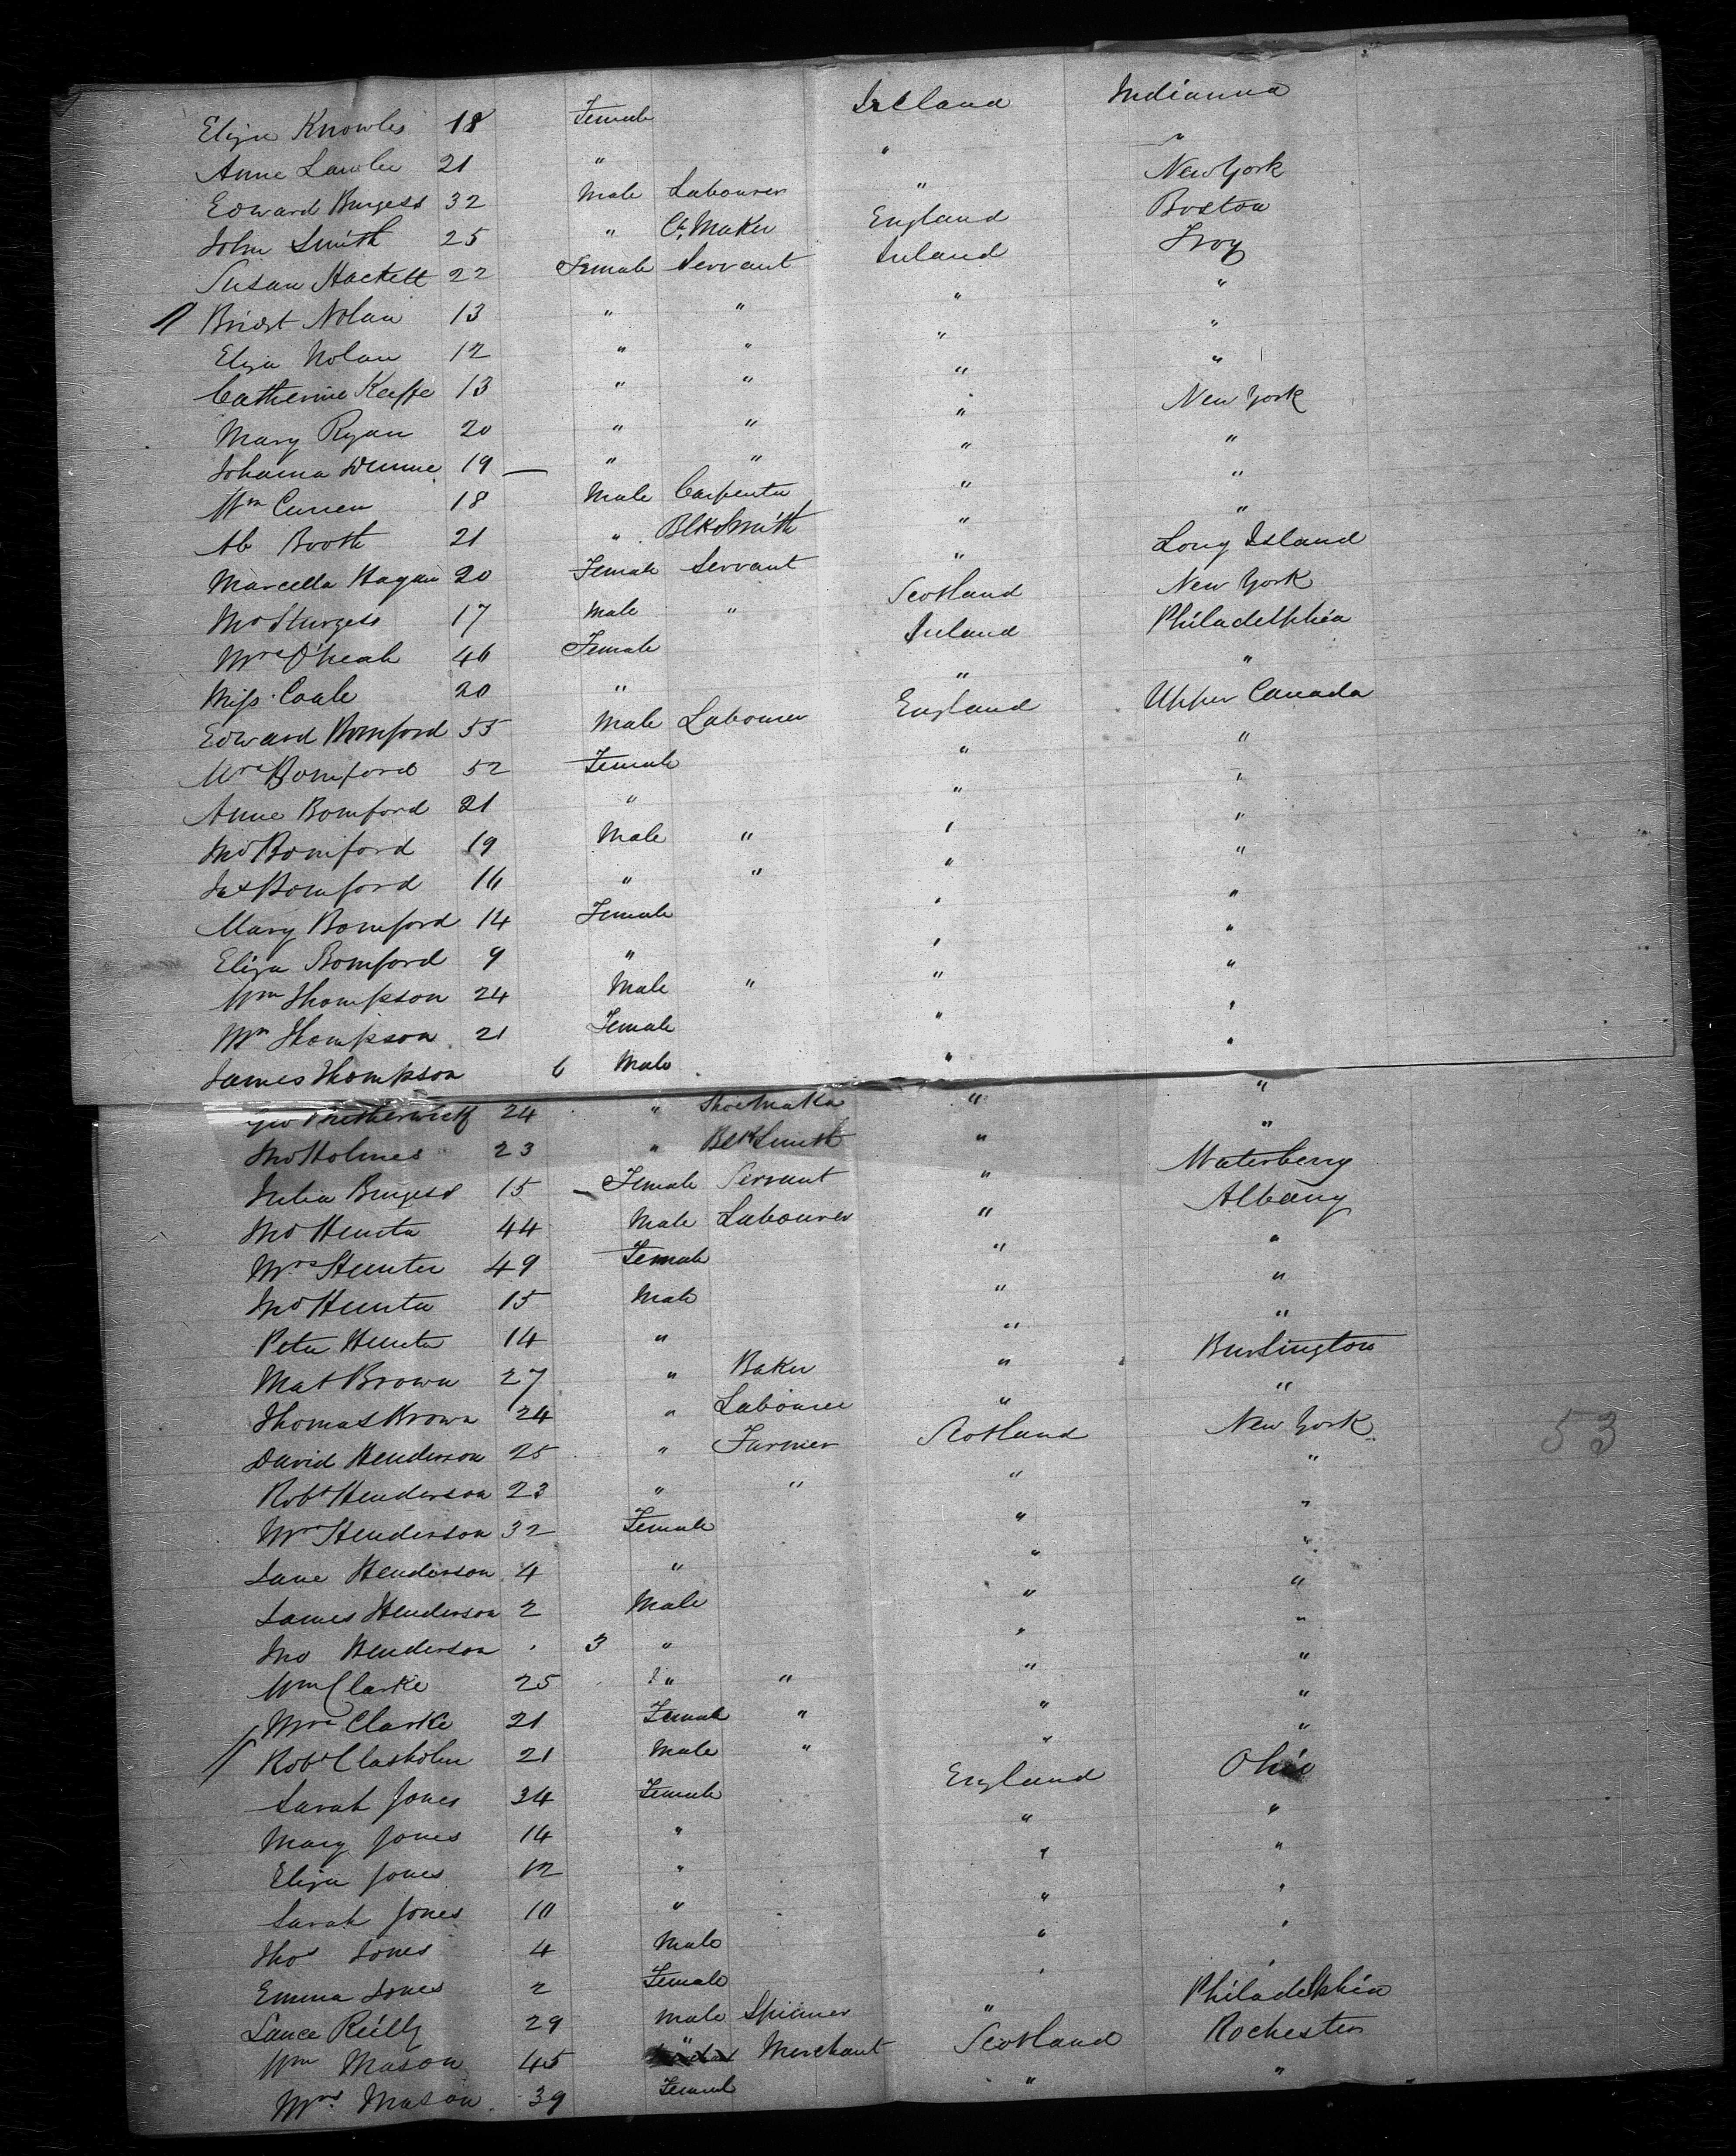 Eliza Knowles 18 Female Ireland Indianna
Anne Lawler 21 " " "
Edward Burgess 32 Male Labourer " New York
John Smith 25 " Maker England Boston
Susan Hackett 22 Female Servant Ireland Troy
Bridst Nolan 13 " " " "
Eliza Nolan 12 " " " "
Catherine Keeffe 13 " " " "
Mary Ryan 20 " " " New York
Johanna Dunne 19 — " " " "
Wm Curren 18 Male Carpenter " "
Ab Booth 21 " BlkSmith " "
Marcella Hagan 20 Female Servant " Long Island
Mr Sturgess 17 Male " Scotland New York
Mrs 46 Female Ireland Philadelphia
Miss Coale 20 " " "
Edward Bomford 55 Male Labourer England Upper Canada
Mrs Bomford 52 Female " "
Anne Bomford 21 " " "
Jno Bomford 19 Male " " "
Jas Bomford 16 " " " "
Mary Bomford 14 Female " "
Eliza Bomford 9 " " "
Wm Thompson 24 Male " " "
Mrs Thompson 21 Female " "
James Thompson 6 Male " "
Geo 24 " Shoemaker " "
Jno Holmes 23 " BlkSmith " "
Julia Burgess 15 – Female Servant " Waterberry
Jno Hunter 44 Male Labourer " Albany
Mrs Hunter 49 Female " "
Jno Hunter 15 Male " "
Peter Hunter 14 " " "
Mat Brown 27 " Baker " Burlington
Thomas Brown 24 " Labourer " "
David Henderson 25 " Farmer Scotland New York 53
Robt Henderson 23 " " " "
Mrs Henderson 32 Female " "
Jane Henderson 4 " " "
James Henderson 2 Male " "
Jno Henderson 3 " " "
Wm Clarke 25 " " " "
Mrs Clarke 21 Female " " "
Robt Clasholm 21 Male " " "
Sarah Jones 34 Female England Ohio
Mary Jones 14 " " "
Eliza Jones 12 " " "
Sarah Jones 10 " " "
Thos Jones 4 Male " "
Emma Jones 2 Female " "
Lance Reilly 29 Male Spinner " Philadelphia
Wm Mason 45 " Merchant Scotland Rochester
Mrs Mason 39 Female " "